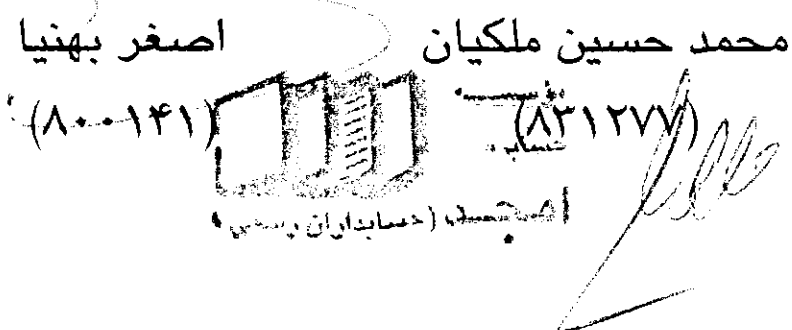 محمد حسین ملکیان اصغر بهنیا
(۸۳۱۲۷۷) (۸۰۰۱۴۱)
(حسابداران رسمی)